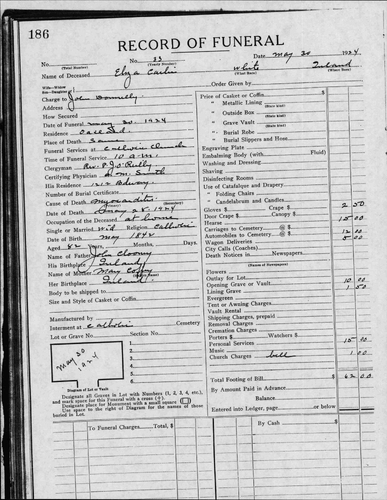 186
RECORD OF FUNERAL
No. (Total Number) No. 83 (Yearly Number) Date May 30 1924
Name of Deceased Eliza Carlin White (What Race) Ireland (Where Born)
Charge to John Donnelly
Address
How Secured
Date of Funeral May 30, 1924
Residence
Place of Death Same
Funeral Services at Catholic Church
Time of Funeral Service 10 a.m.
Clergyman Rev. P. J. O'Reilly
Certifying Physician Smith
His Residence 1212 Bdway.
Number of Burial Certificate
Cause of Death Myocarditis
Date of Death May 28 1924
Occupation of the Deceased at home
Single or Married Wid Religion Catholic
Date of Birth May 1844
Aged Years, Months, Days.
Name of Father John Clooney
His Birthplace Ireland
Name of Mother May
Her Birthplace Ireland
Body to be shipped to
Size and Style of Casket or Coffin
Manufactured by
Interment at Catholic Cemetery
Lot or Grave No. Section No.
May 30
1924
1
2
3
4
5
Diagram of Lot or Vault
Designate all Graves in Lot with Numbers (1, 2, 3, 4, etc.),
and mark space for this Funeral with a cross (+).
Designate place for Monument with a small square
Use space to right of Diagram for the names of those
buried in Lot.
Order Given by
Price of Casket or Coffin
" Metallic Lining (State kind)
" Outside Box (State kind)
" Grave Vault (State kind)
" Burial Robe
" Burial Slippers and Hose
Engraving Plate
Embalming Body (with Fluid)
Washing and Dressing
Shaving
Disinfecting Rooms
Use of Catafalque and Drapery
" Folding Chairs
" Candelabrum and Candles
Gloves $ Crape $ 2 50
Door Crape $ Canopy $
Hearse 15 00
Carriages to Cemetery @ $ 12 00
Automobiles to Cemetery @ $ 5 00
Wagon Deliveries
City Calls (Coaches)
Death Notices in Newspapers
(Names of Newspapers)
Flowers
Outlay for Lot
Opening Grave or Vault 10 00
Lining Grave 1 50
Evergreen
Tent or Awning Charges
Vault Rental
Shipping Charges, prepaid
Removal Charges
Cremation Charges
Porters $ Watchers $
Personal Services 15 00
Music
Church Charges bell 1 00
Total Footing of Bill $ 62 00
By Amount Paid in Advance
Balance
Entered into Ledger, page or below
To Funeral Charges Total, $
By Cash $